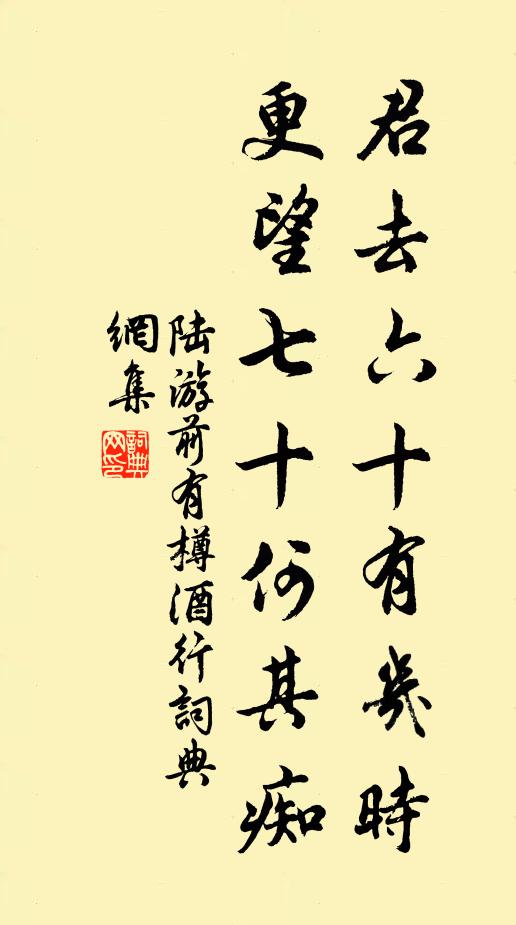 君去六十有幾時
更望七十何其痴
陆游前有樽酒行詞典
網集
詞典网印